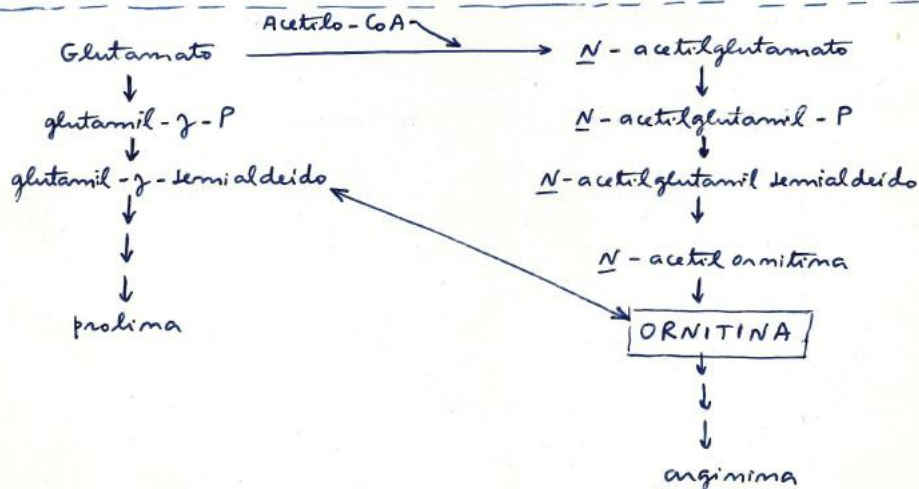 Acetilo-CoA
Glutamato
N - acetilglutamato
glutamil-γ-P
N - acetilglutamil - P
glutamil-γ-semialdeído
N-acetilglutamil semialdeído
N - acetil ornitina
prolina
ORNITINA
arginina